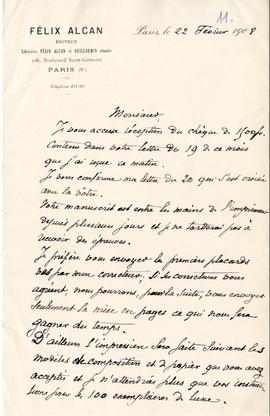 11.
FÉLIX ALCAN
ÉDITEUR
Librairies FÉLIX ALCAN et GUILLAUMIN réunies
108, Boulevard Saint-Germain
PARIS (6e)
Paris, le 22 Février 1908
Monsieur
Je vous accuse réception du chèque de
Contenu dans votre lettre du 19 de ce mois
que j'ai reçue ce matin.
Je vous confirme ma lettre du 20 qui s'est croisée
avec la vôtre.
Votre manuscrit est entre les mains de l'imprimeur
depuis plusieurs jours et je ne tarderai pas à
recevoir des épreuves.
Je préfère vous envoyer les premiers placards
par mon correcteur, si ses corrections vous
agréent, nous pourrons, pour la suite, vous envoyer
seulement la mise en pages ce qui nous fera
gagner du temps.
D'ailleurs l'impression sera faite suivant les
modèles de composition et de papier que vous avez
acceptés et je n'attendrai plus que vos
pour les 100 exemplaires de luxe.